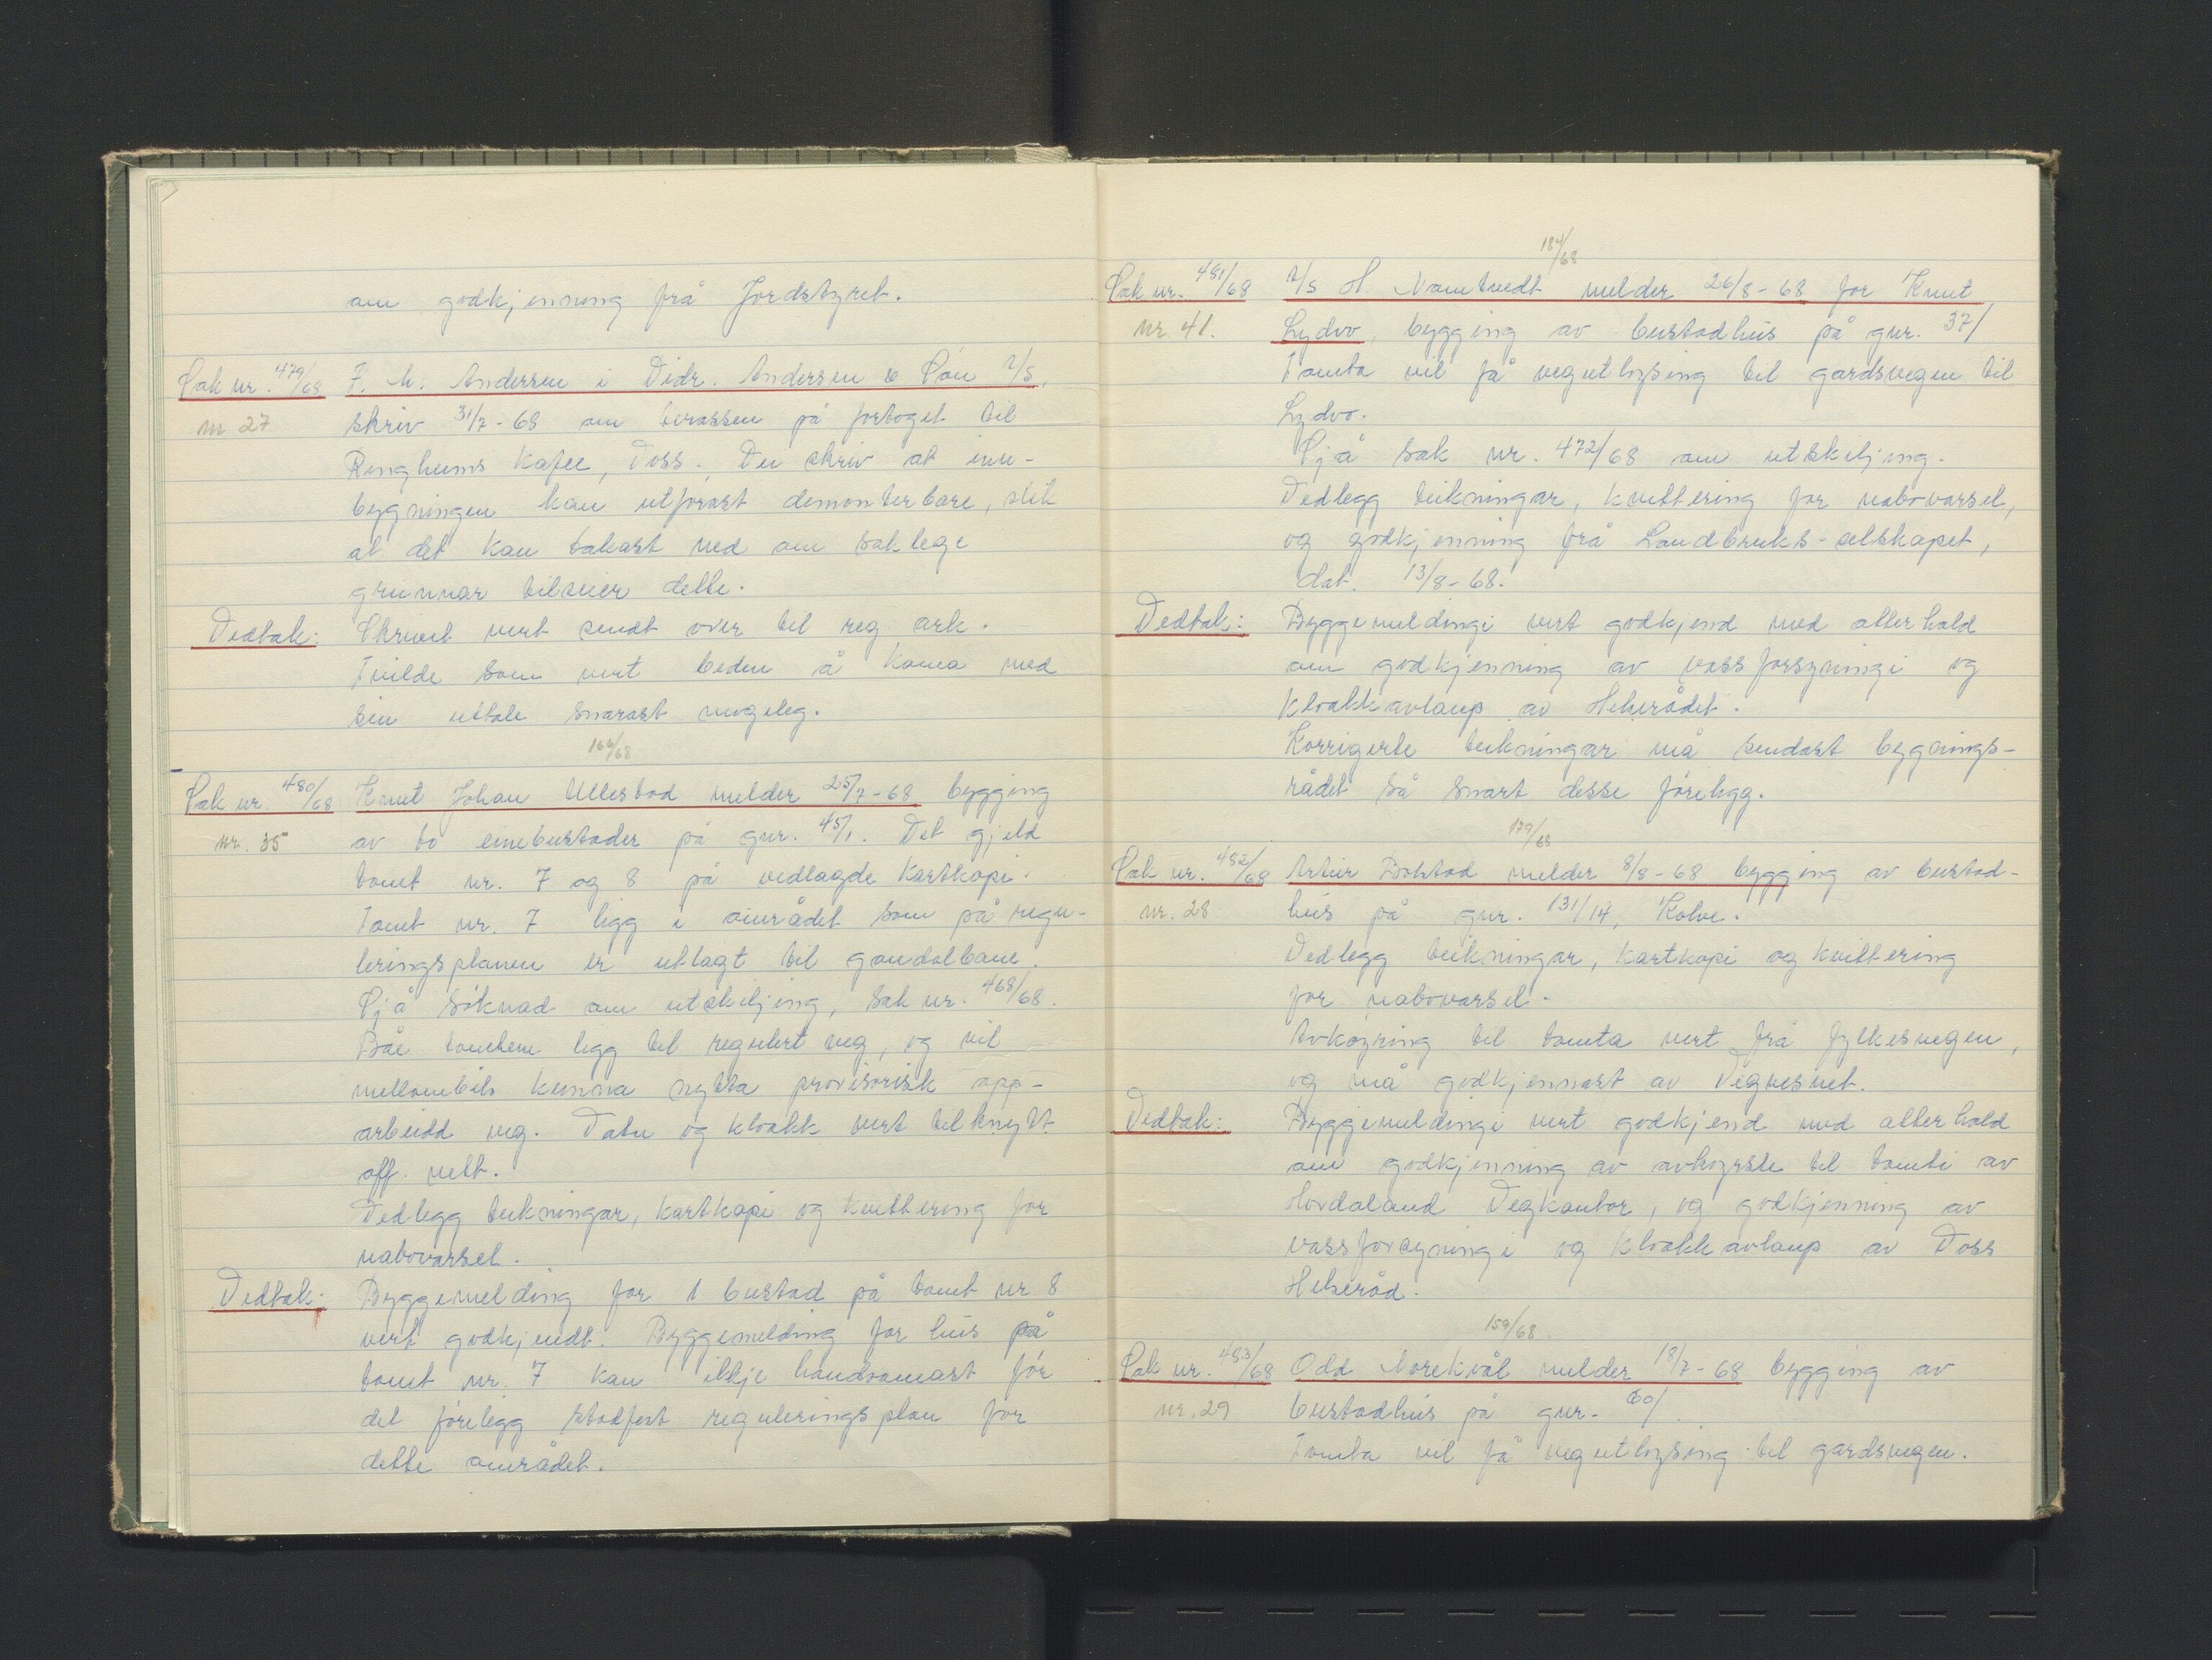 om godkjenning frå Jordstyret.
Sak nr. 479/68 F. M. Andersen i Didr. Andersen & Søn A/S,
nr 27 skriv 31/7-68 om terassen på fortoget til
Ringheims Kafee, Voss. Dei skriv at inn-
bygningen kan utførast demonterbare, slik
at det kan takast ned om saklege
grunnar tilseier dette.
Vedtak: Skrivet vert sendt over til reg ark.
Tvilde som vert beden å koma med
sin uttale snarast mogeleg.
166/68
Sak nr. 480/68 Knut Johan Ullestad melder 25/7-68 bygging
nr. 35 av to einebustader på gnr. 45/1. Det gjeld
tomt nr. 7 og 8 på vedlagde kartkopi.
Tomt nr. 7 ligg i området som på regu-
leringsplanen er utlagt til gondolbane.
Sjå søknad om utskiljing, sak nr. 468/68.
Båe tomtene ligg til regulert veg, og vil
mellombils kunna nytta provisorisk opp-
arbeidd veg. Vatn og kloakk vert tilknytt
off. nett.
Vedlegg teikningar, kartkopi og kvittering for
nabovarsel.
Vedtak: Byggemelding for 1 bustad på tomt nr 8
vert godkjendt. Byggemelding for hus på
tomt nr. 7 kan ikkje handsamast før
det føreligg stadfest reguleringsplan for
dette området.
184/68
Sak nr. 481/68 A/S H. Namtvedt melder 26/8-68 for Knut
nr. 41. Lydvo, bygging av bustadhus på gnr. 37/
Tomta vil få vegutløysing til gardsvegen til
Lydvo.
Sjå sak nr. 472/68 om utskiljing.
Vedlegg teikningar, kvittering for nabovarsel,
og godkjenning frå Landbruks-selskapet,
dat. 13/8-68.
Vedtak: Byggemeldingi vert godkjend med atterhald
om godkjenning av vassforsyningi og
kloakkavlaup av Helserådet.
Korrigerte teikningar må sendast bygnings-
rådet så snart desse føreligg.
179/68
Sak nr. 482/68 Artur Bolstad melder 8/8-68 bygging av bustad-
nr. 28 hus på gnr. 131/14, Kolve.
Vedlegg teikningar, kartkopi og kvittering
for nabovarsel.
Avkøyring til tomta vert frå fylkesvegen,
og må godkjennast av Vegvesnet.
Vedtak: Byggemeldingi vert godkjend med atterhald
om godkjenning av avkøyrsle til tomti av
Hordaland Vegkontor, og godkjenning av
vassforsyningi og kloakkavlaup av Voss
Helseråd.
159/68.
Sak nr. 483/68 Odd Norekvål melder 18/7-68 bygging av
nr. 29 bustadhus på gnr. 60/
Tomta vil få vegutløysing til gardsvegen.